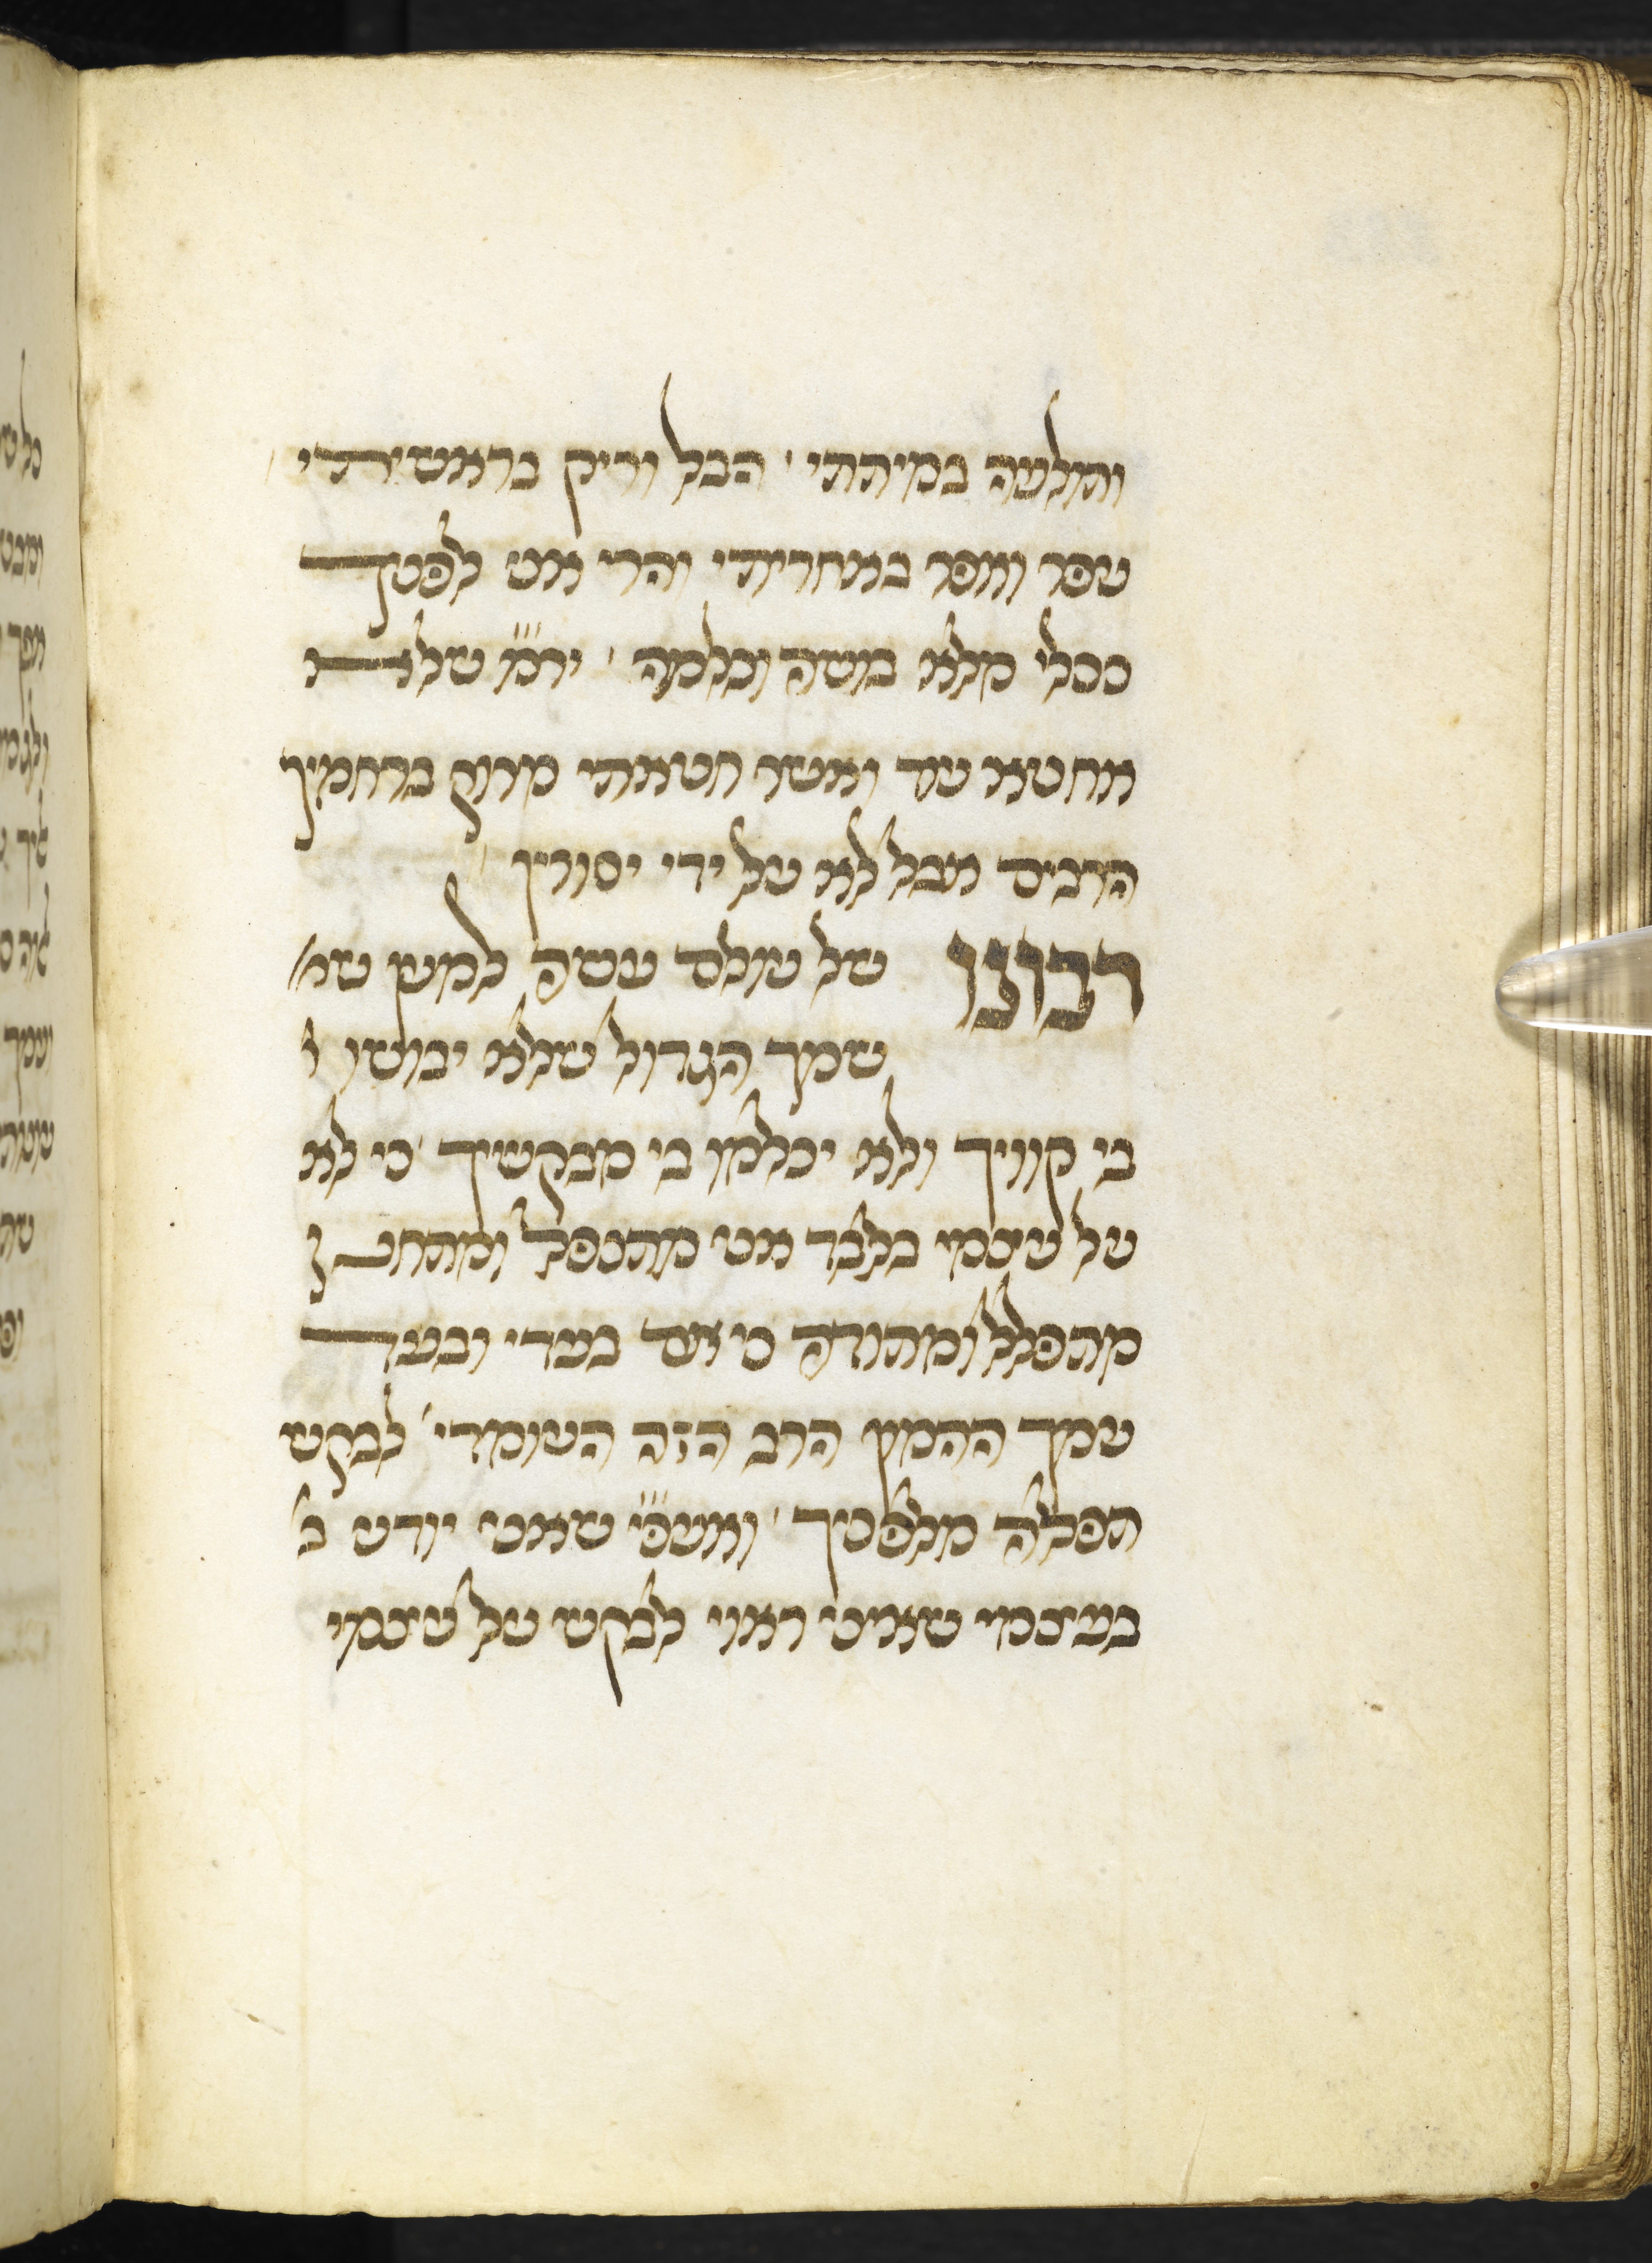 ותולעה במיתתי ׳ הבל וריק בראשיתי
עפר ואפר באחריתי והרי אני לפניך
ככלי מלא בושה וכלמה ׳ יר״מ שלא
אחטא עוד ואשר חטאתי מרוק ברחמיך
הרבים אבל לא על ידי יסורין
רבונו של עולם עשה למען ש
שמך הגדול שלא יבושו
בי קוויך ולא יכלמו בי מבקשיך ׳ כי לא
על עצמי בלבד אני מתנפל ומתחנן
מתפלל ומתודה כי אם בעדי ובעד
עמך ההמון הרב הזה העומדי׳ לבקש
תפלה מלפניך ׳ ואעפ״י שאני יודע ב
בעצמי שאיני ראוי לבקש על עצמי